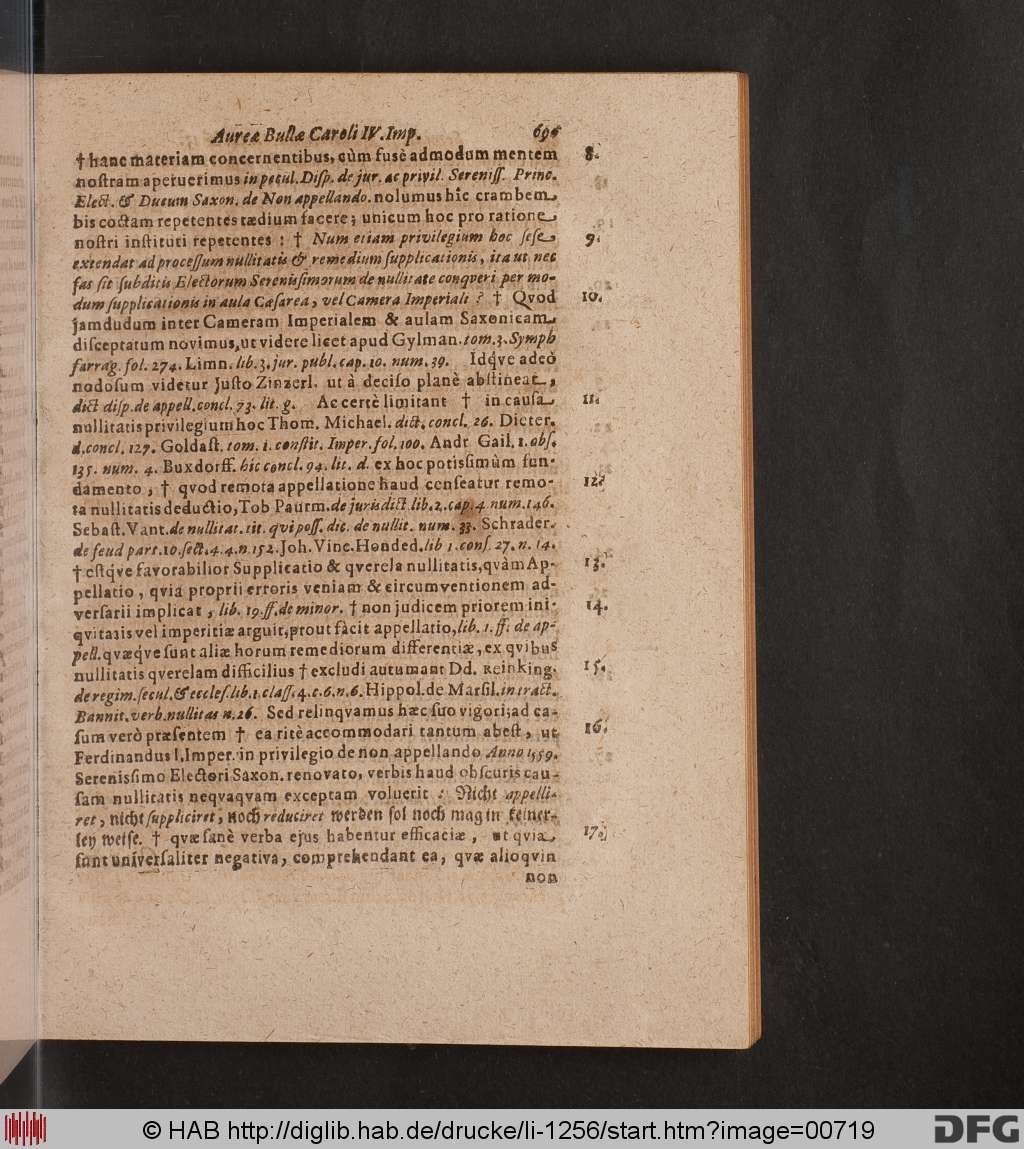 Aureæ Bullæ Caroli IV. Imp. 695
† hanc materiam concernentibus, cùm fusè admodum mentem 8.
nostram aperuerimus in pecul. Disp. de jur. ac privil. Sereniss. Princ.
Elect. & Ducum Saxon. de Non appellando. nolumus hîc crambem
bis coctam repetentes tædium facere; unicum hoc pro ratione
nostri instituti repetentes : † Num etiam privilegium hoc sese 9.
extendat ad processum nullitatis & remedium supplicationis, ita ut nec
fas sit subditis Electorum Serenissimorum de nullitate conqveri per mo-
dum supplicationis in aula Cæsarea, vel Camera Imperiali ? † Qvod 10.
jamdudum inter Cameram Imperialem & aulam Saxonicam
disceptatum novimus, ut videre licet apud Gylman. tom. 3. Symph
farrag. fol. 274. Limn. lib. 3. jur. publ. cap. 10. num. 39. Idqve adeò
nodosum videtur Justo Zinzerl. ut à deciso planè abstineat,
dict disp. de appell. concl. 73. lit. g. Ac certè limitant † in causa 11.
nullitatis privilegium hoc Thom. Michael. dict. concl. 26. Dieter.
d. concl. 127. Goldast. tom. 1. constit. Imper. fol. 100. Andr. Gail. 1. obs.
135. num. 4. Buxdorff. hic concl. 94. lit. d. ex hoc potissimùm fun-
damento, † qvod remota appellatione haud censeatur remo- 12.
ta nullitatis deductio, Tob Paurm. de jurisdict lib. 2. cap. 4. num. 146.
Sebast. Vant. de nullitat. tit. qvi poss. dic. de nullit. num. 33. Schrader.
de feud part. 10. sect. 4. 4. n. 152. Joh. Vinc. Honded. lib 1. cons. 27. n. 14.
† estqve favorabilior Supplicatio & qverela nullitatis, qvàm Ap- 13.
pellatio, qvia proprii erroris veniam & circumventionem ad-
versarii implicat, lib. 19. ff. de minor. † non judicem priorem ini- 14.
qvitatis vel imperitiæ arguit, prout facit appellatio, lib. 1. ff. de ap-
pell. qvæqve sunt aliæ horum remediorum differentiæ, ex qvibus
nullitatis qverelam difficilius † excludi autumant Dd. Reinking. 15.
de regim. secul. & eccles. lib. 1. class. 4. c. 6. n. 6. Hippol. de Marsil. in tract.
Bannit. verb. nullitas n. 26. Sed relinqvamus hæc suo vigori; ad ca-
sum verò præsentem † ea ritè accommodari tantum abest, ut 16.
Ferdinandus I. Imper. in privilegio de non appellando Anno 1559.
Serenissimo Electori Saxon. renovato, verbis haud obscuris cau-
sam nullitatis neqvaqvam exceptam voluerit : Nicht appelli-
ret, nicht suppliciret, noch reduciret werden sol noch mag in keiner-
ley weise. † qvæ sanè verba ejus habentur efficaciæ, ut qvia 17.
sunt universaliter negativa, comprehendant ea, qvæ alioqvin
non
© HAB http://diglib.hab.de/drucke/li-1256/start.htm?image=00719
DFG